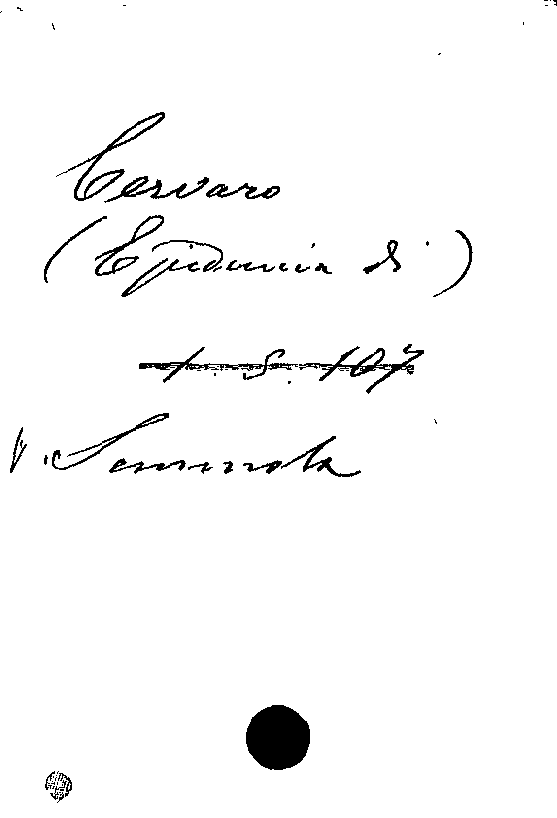 Cervaro
(Epidemia di)
1. S. 107
V. Semmola